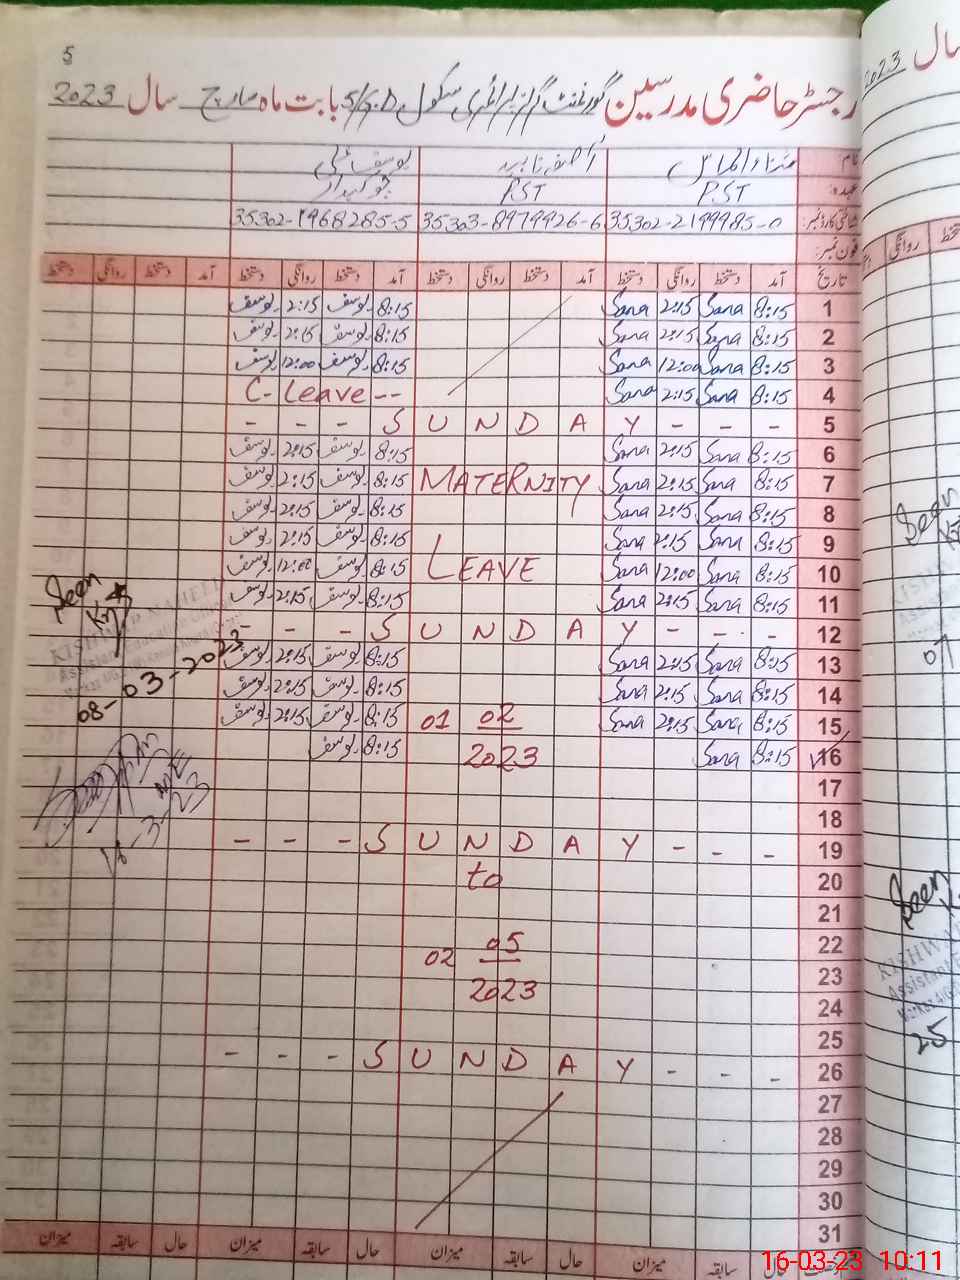 5
رجسٹر حاضری مدرسین گورنمنٹ گرلز پرائمری سکول 5/G.D بابت ماہ مارچ سال 2023
نام ثناء الماس آصفہ ناہید یوسف علی
عہدہ: PST PST چوکیدار
شناختی کارڈ نمبر: 35302-2199985-0 35303-8979926-6 35302-1968285-5
فون نمبر:
تاریخ آمد دستخط روانگی دستخط آمد دستخط روانگی دستخط آمد دستخط روانگی دستخط آمد دستخط روانگی دستخط
1 8:15 Sana 2:15 Sana 8:15 یوسف 2:15 یوسف
2 8:15 Sana 2:15 Sana 8:15 یوسف 2:15 یوسف
3 8:15 Sana 12:00 Sana 8:15 یوسف 12:00 یوسف
4 8:15 Sana 2:15 Sana C- Leave --
5 - - - S U N D A Y - - -
6 8:15 Sana 2:15 Sana 8:15 یوسف 2:15 یوسف
7 8:15 Sana 2:15 Sana MATERNITY 8:15 یوسف 2:15 یوسف
8 8:15 Sana 2:15 Sana 8:15 یوسف 2:15 یوسف
9 8:15 Sana 2:15 Sana 8:15 یوسف 2:15 یوسف
10 8:15 Sana 12:00 Sana LEAVE 8:15 یوسف 12:00 یوسف
11 8:15 Sana 2:15 Sana 8:15 یوسف 2:15 یوسف
12 - - - S U N D A Y - - -
13 8:15 Sana 2:15 Sana 8:15 یوسف 2:15 یوسف
14 8:15 Sana 2:15 Sana 8:15 یوسف 2:15 یوسف
15 8:15 Sana 2:15 Sana 01 02 8:15 یوسف 2:15 یوسف
16 8:15 Sana 2023 8:15 یوسف
17
18
19 - - - S U N D A Y - - -
20 to
21
22 02 05
23 2023
24
25
26 - - - S U N D A Y - - -
27
28
29
30
31
حال سابقہ میزان حال سابقہ میزان حال سابقہ میزان حال سابقہ میزان
Seen
KISHWAR NAHEED
Assistant Education Officer
08-03-2023
16-3-23
سال 2023
روانگی
Seen
KISHWAR
07
Seen
KISHWAR
Assistant
25
16-03-23 10:11